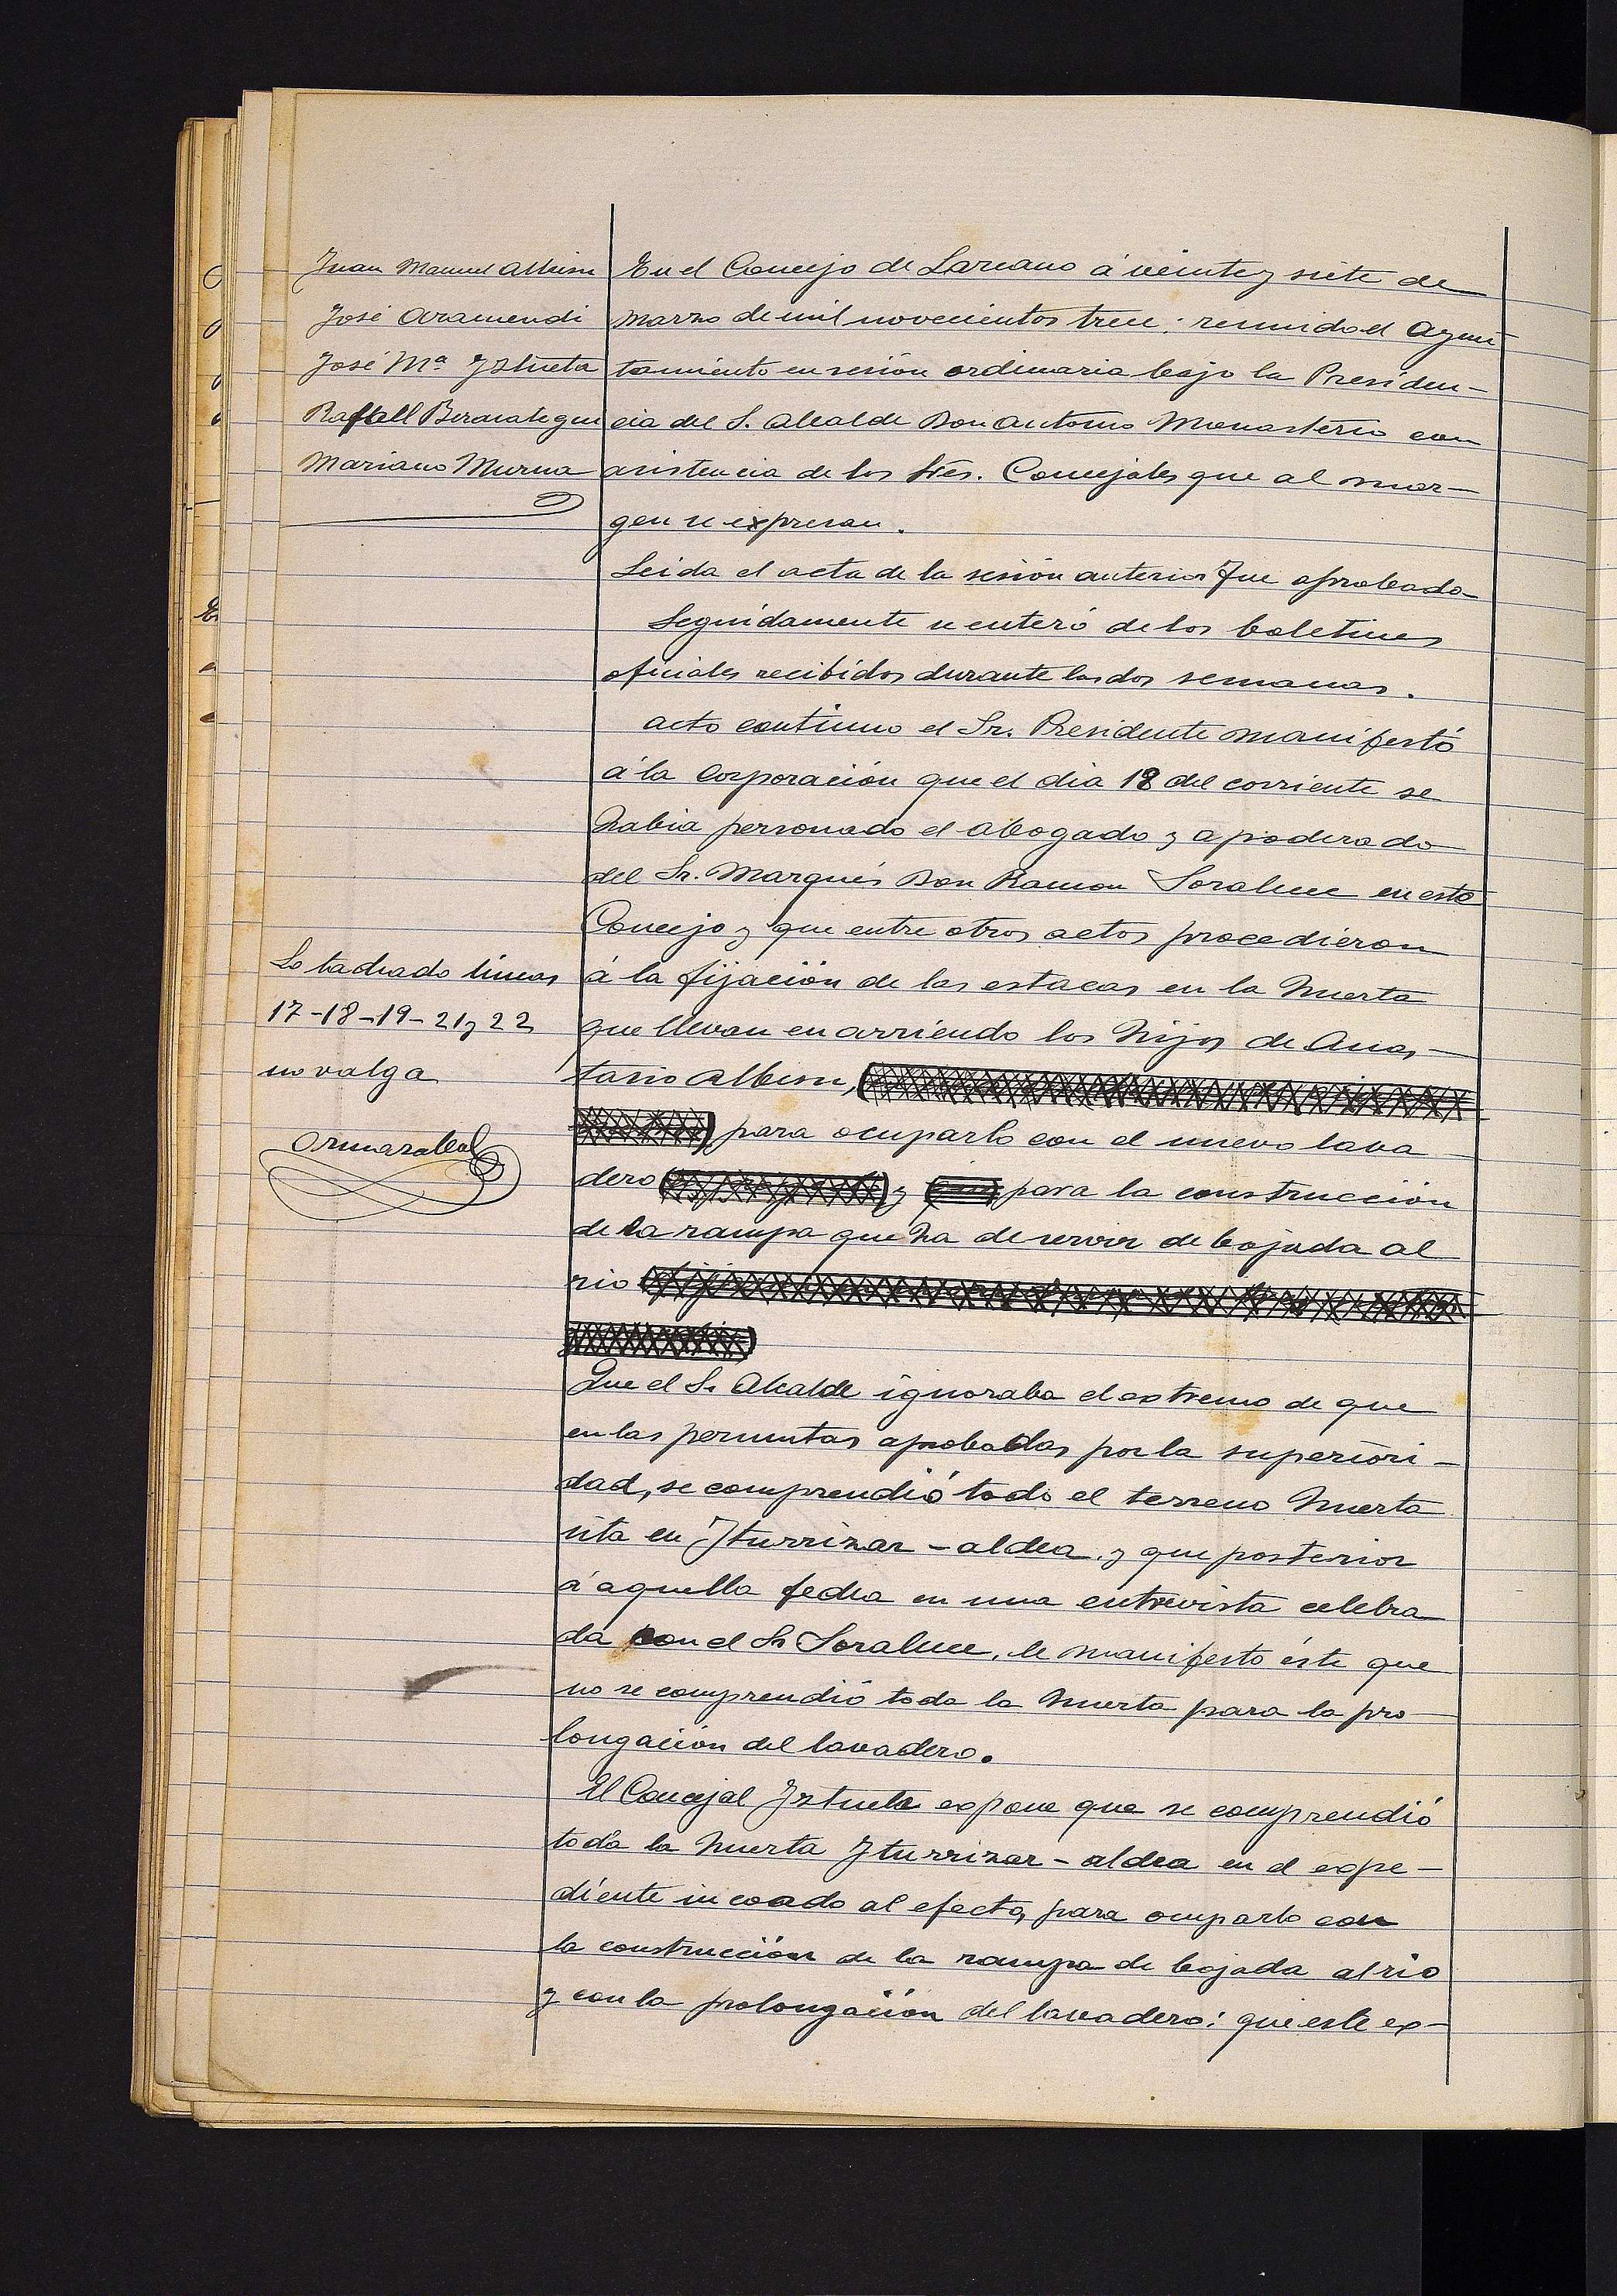 Juan Manuel Albisu
José Aramendi
José Mª Yztueta
Rafaell Berasategui
Mariano Murua
En el Concejo de Lazcano á veinte y siete de
marzo de mil novecientos trece: reunido el Ayun
tamiento en sesión ordinaria bajo la Presiden-
cia del S. Alcalde Don Antonio Monasterio con
asistencia de los Sres. Concejales que al mar-
gen se expresan.
Leida el acta de la sesión anterior fue aprobada
Seguidamente se enteró de los boletines
oficiales recibidos durante las dos semanas.
acto continuo el Sr. Presidente manifestó
á la Corporación que el dia 18 del corriente se
habia personado el abogado y apoderado
del Sr. Marqués Don Ramon Soraluce en este
Concejo y que entre otros actos procedieron
á la fijación de las estacas en la huerta
que llevan en arriendo los hijos de Anas-
tasio Albisu,
para ocuparlo con el nuevo lava
dero y para la construcción
de la rampa que ha de servir de bajada al
rio
Que el Sr Alcalde ignoraba el extremo de que
en las permutas aprobadas por la superiori-
dad, se comprendió todo el terreno huerta
sita en Yturrizar-aldea. y que posterior
á aquella fecha en una entrevista celebra
da con el Sr Soraluce, le manifestó éste que
no se comprendió toda la huerta para la pro-
longación del lavadero.
El Concejal Yztueta expone que se comprendió
toda la huerta Yturrizar-aldea en el expe-
diente incoado al efecto, para ocuparlo con
la construcción de la rampa de bajada al rio
y con la prolongación del lavadero: que este ex-
Lo tachado lineas
17-18-19-21 y 22
no valga
Ormazabal